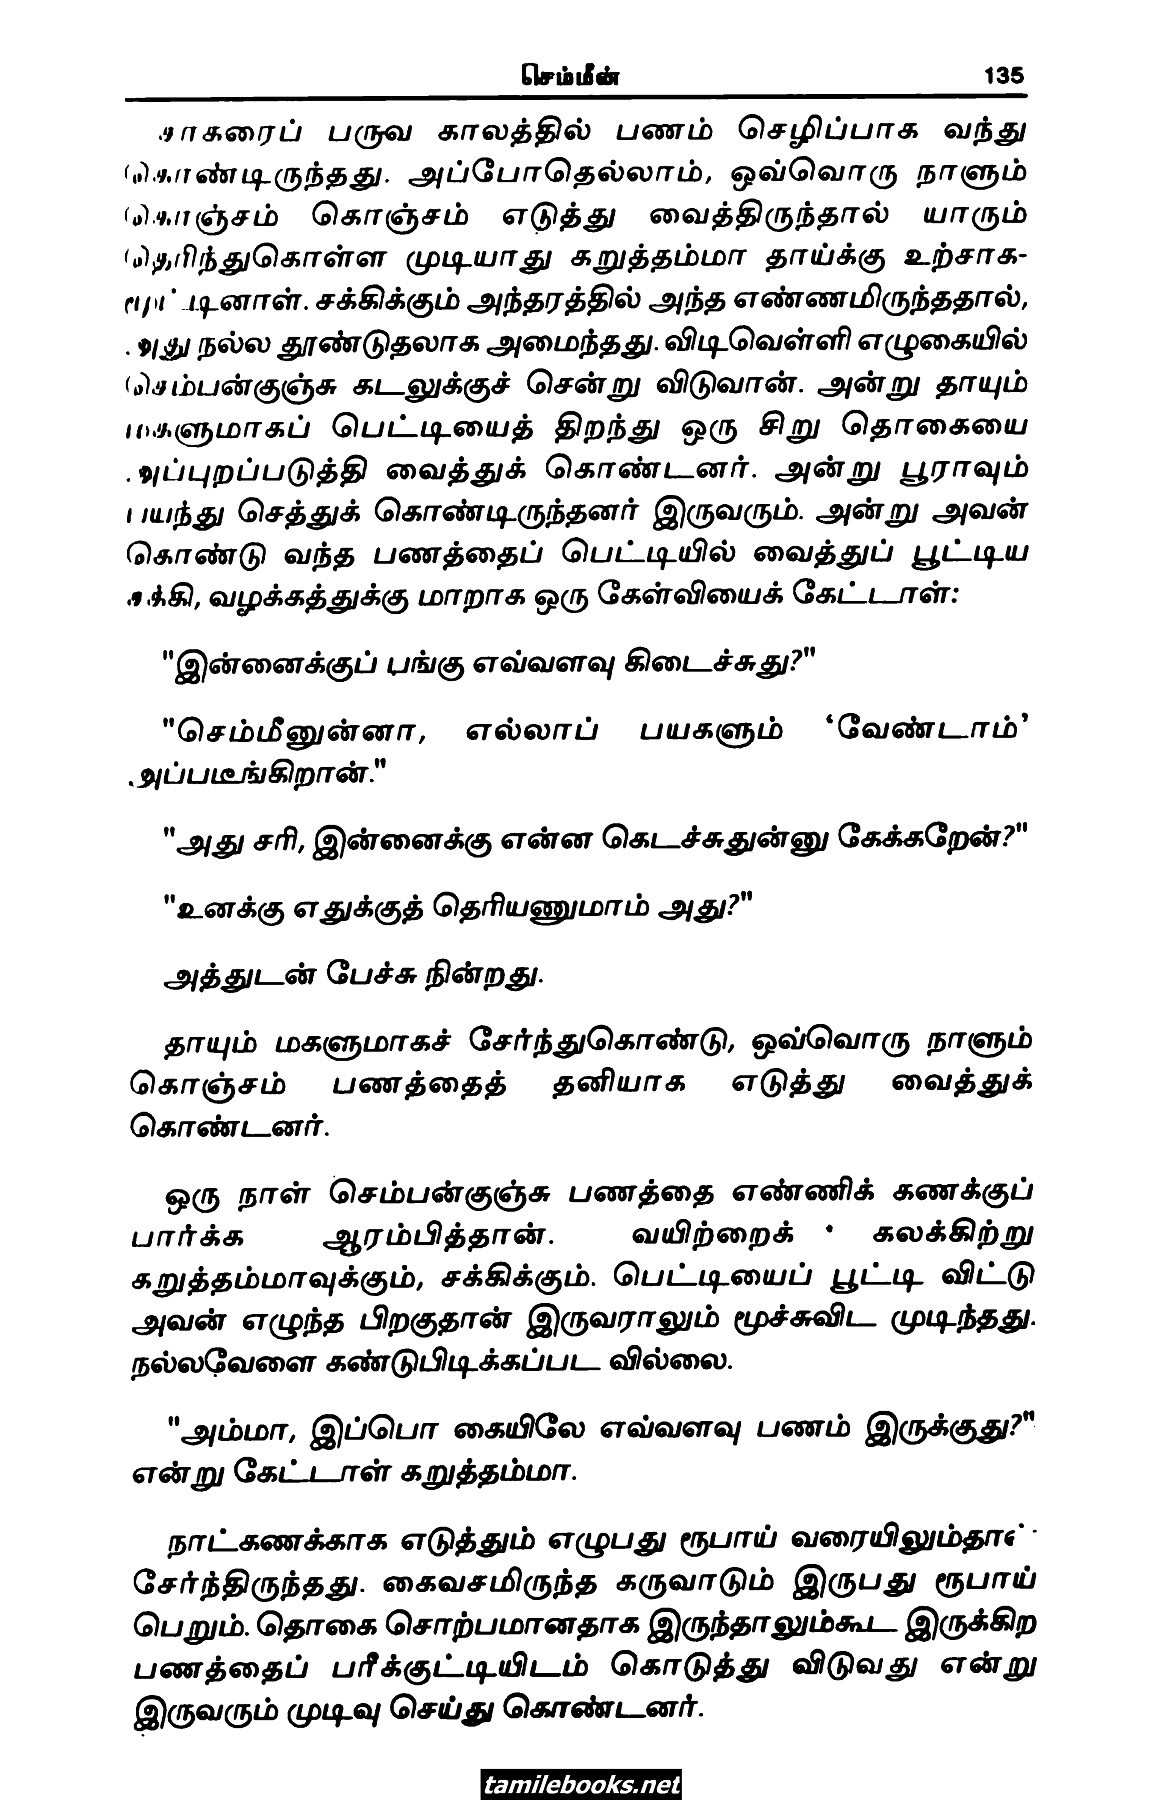 செம்மீன் 135
சாகரைப் பருவ காலத்தில் பணம் செழிப்பாக வந்து
கொண்டிருந்தது. அப்போதெல்லாம், ஒவ்வொரு நாளும்
கொஞ்சம் கொஞ்சம் எடுத்து வைத்திருந்தால் யாரும்
தெரிந்துகொள்ள முடியாது கறுத்தம்மா தாய்க்கு உற்சாக-
மூட்டினாள். சக்கிக்கும் அந்தரத்தில் அந்த எண்ணமிருந்ததால்,
அது நல்ல தூண்டுதலாக அமைந்தது. விடிவெள்ளி எழுகையில்
செம்பன்குஞ்சு கடலுக்குச் சென்று விடுவான். அன்று தாயும்
மகளுமாகப் பெட்டியைத் திறந்து ஒரு சிறு தொகையை
அப்புறப்படுத்தி வைத்துக் கொண்டனர். அன்று பூராவும்
பயந்து செத்துக் கொண்டிருந்தனர் இருவரும். அன்று அவன்
கொண்டு வந்த பணத்தைப் பெட்டியில் வைத்துப் பூட்டிய
சக்கி, வழக்கத்துக்கு மாறாக ஒரு கேள்வியைக் கேட்டாள்:
"இன்னைக்குப் பங்கு எவ்வளவு கிடைச்சுது?"
"செம்மீனுன்னா, எல்லாப் பயகளும் ‘வேண்டாம்’
அப்படீங்கிறான்."
"அது சரி, இன்னைக்கு என்ன கெடச்சுதுன்னு கேக்கறேன்?"
"உனக்கு எதுக்குத் தெரியணுமாம் அது?"
அத்துடன் பேச்சு நின்றது.
தாயும் மகளுமாகச் சேர்ந்துகொண்டு, ஒவ்வொரு நாளும்
கொஞ்சம் பணத்தைத் தனியாக எடுத்து வைத்துக்
கொண்டனர்.
ஒரு நாள் செம்பன்குஞ்சு பணத்தை எண்ணிக் கணக்குப்
பார்க்க ஆரம்பித்தான். வயிற்றைக் கலக்கிற்று
கறுத்தம்மாவுக்கும், சக்கிக்கும். பெட்டியைப் பூட்டி விட்டு
அவன் எழுந்த பிறகுதான் இருவராலும் மூச்சுவிட முடிந்தது.
நல்லவேளை கண்டுபிடிக்கப்பட வில்லை.
"அம்மா, இப்பொ கையிலே எவ்வளவு பணம் இருக்குது?"
என்று கேட்டாள் கறுத்தம்மா.
நாட்கணக்காக எடுத்தும் எழுபது ரூபாய் வரையிலும்தான்
சேர்ந்திருந்தது. கைவசமிருந்த கருவாடும் இருபது ரூபாய்
பெறும். தொகை சொற்பமானதாக இருந்தாலும்கூட இருக்கிற
பணத்தைப் பரீக்குட்டியிடம் கொடுத்து விடுவது என்று
இருவரும் முடிவு செய்து கொண்டனர்.
tamilebooks.net